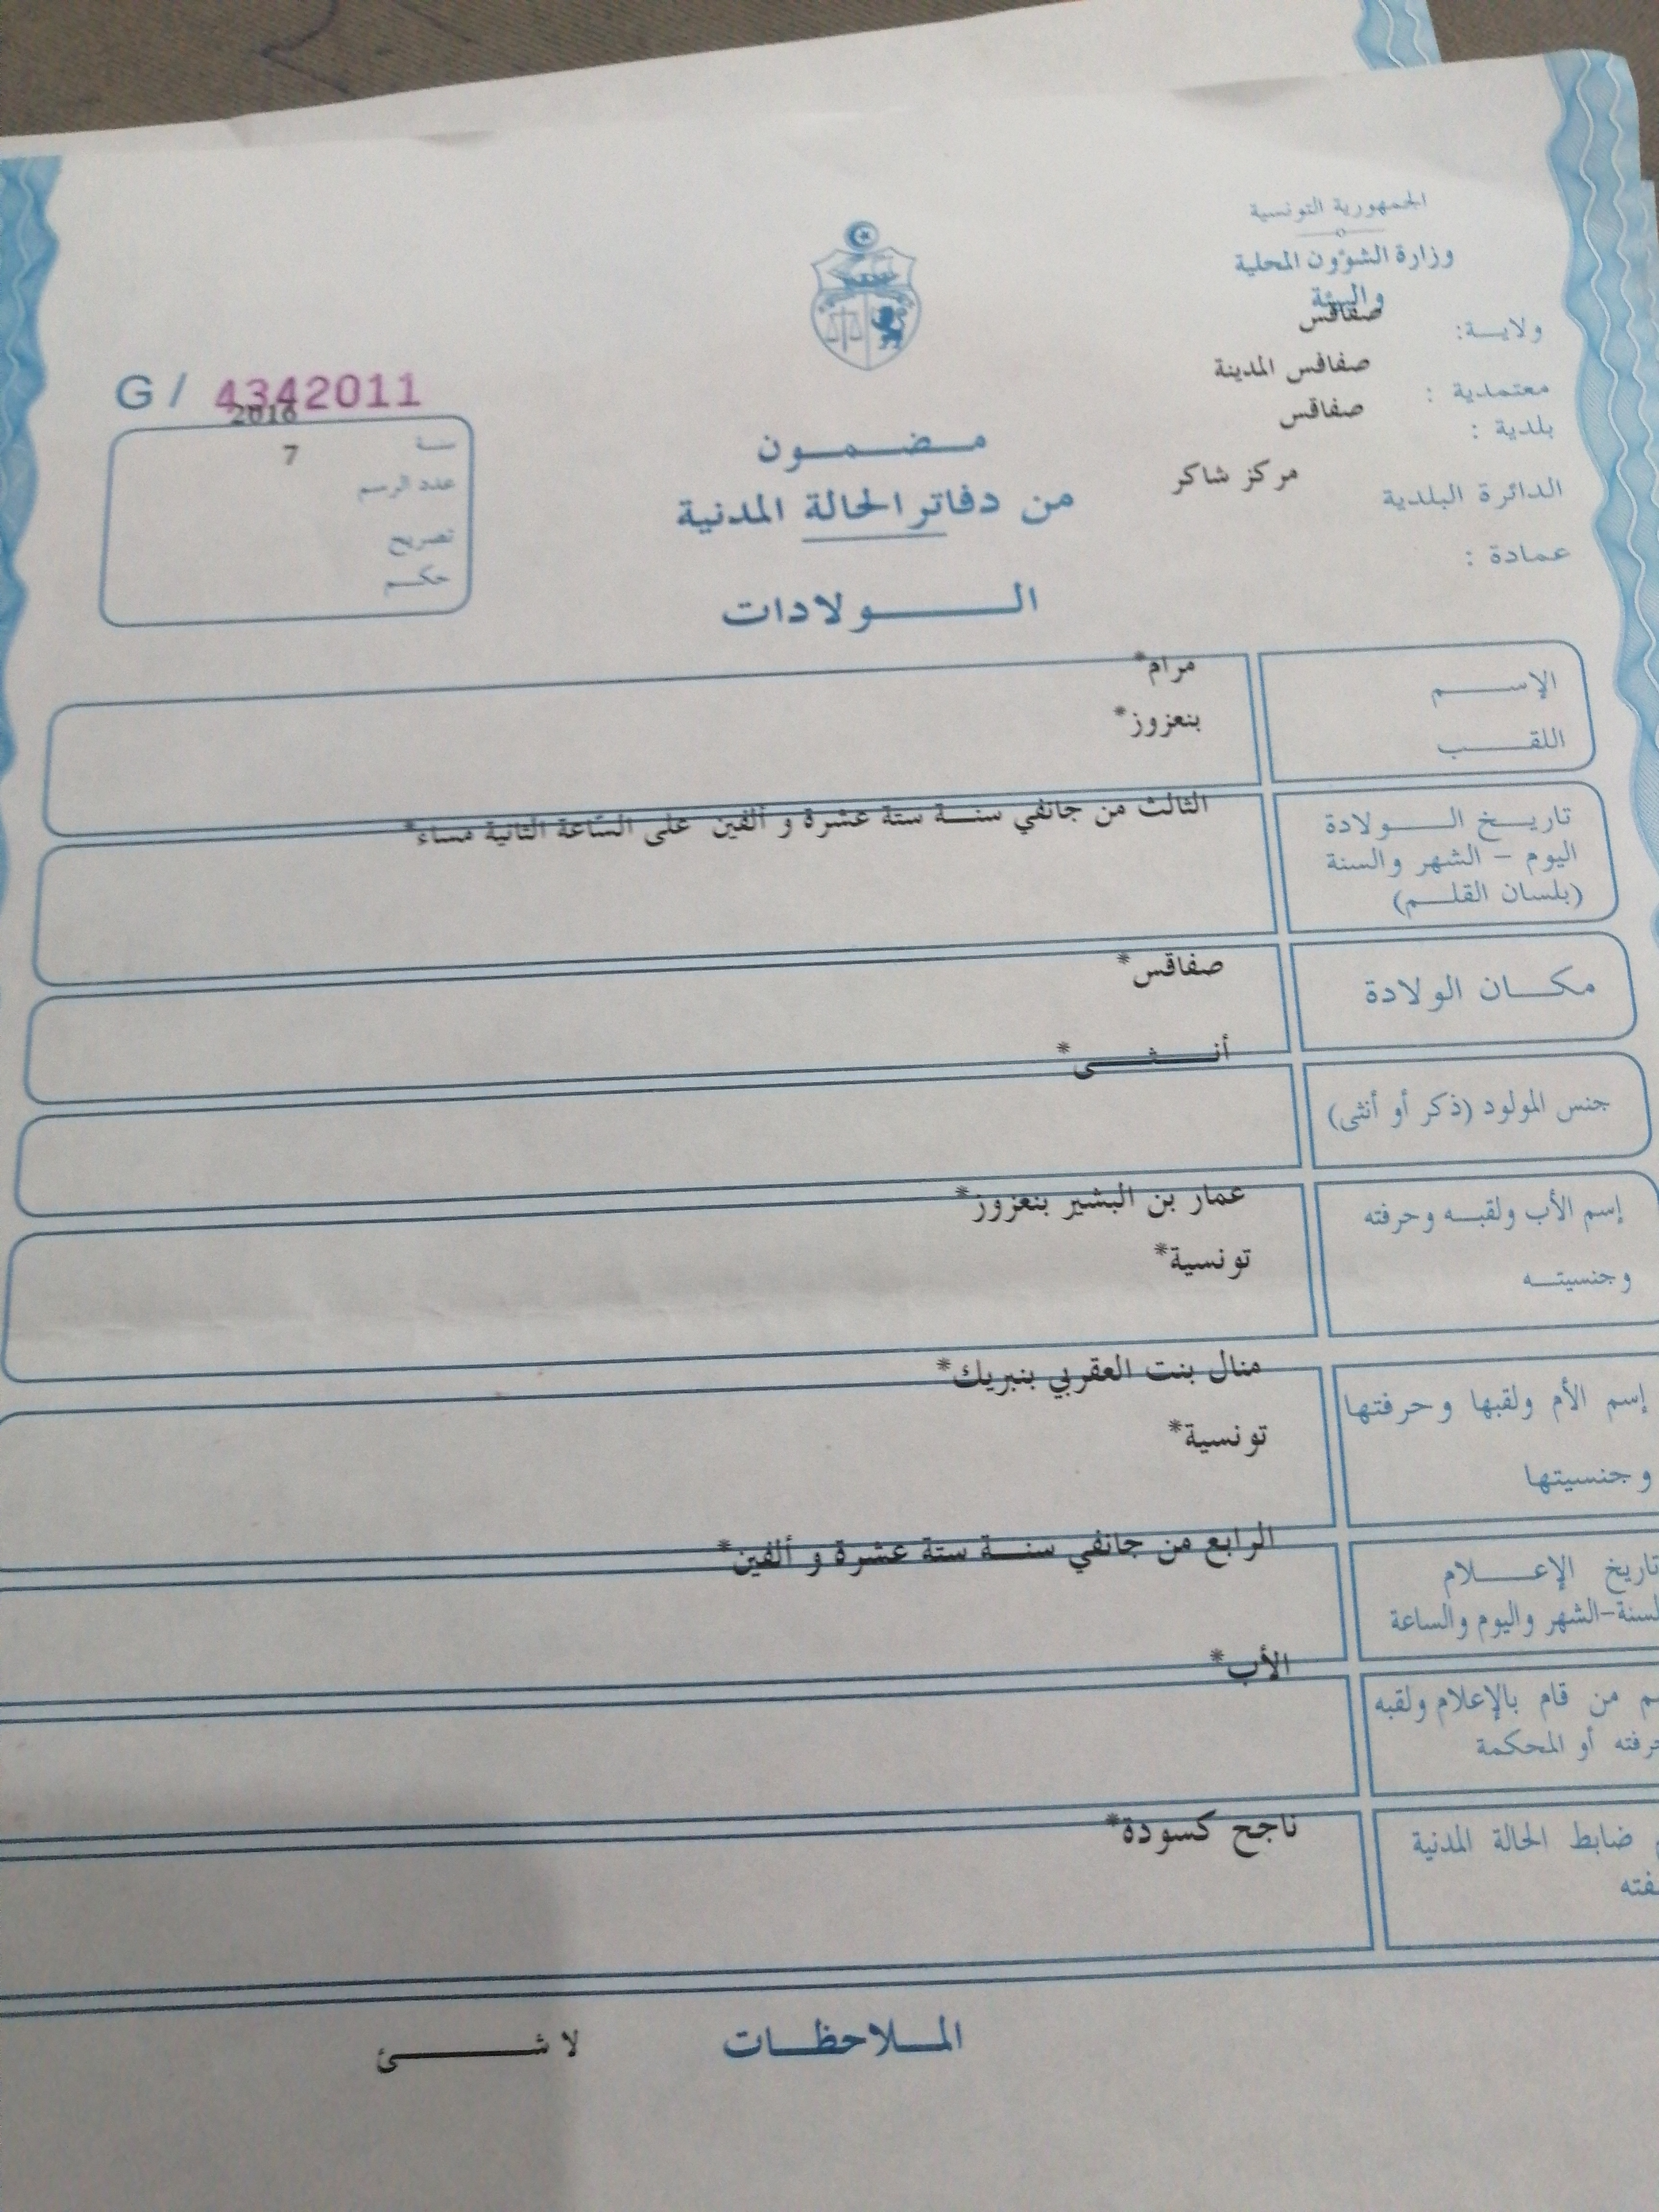 الجمهورية التونسية
وزارة الشؤون المحلية
والبيئة
ولاية: صفاقس
معتمدية : صفاقس المدينة
بلدية : صفاقس
الدائرة البلدية مركز شاكر
عمادة :
G / 4342011
سنة 2016
عدد الرسم 7
تصريح
حكم
مضمون
من دفاتر الحالة المدنية
الولادات
الإسم مرام*
اللقب بنعزوز*
تاريخ الولادة الثالث من جانفي سنة ستة عشرة و ألفين على الساعة الثانية مساء*
اليوم - الشهر والسنة
(بلسان القلم)
مكان الولادة صفاقس*
جنس المولود (ذكر أو أنثى) أنثى*
إسم الأب ولقبه وحرفته عمار بن البشير بنعزوز*
وجنسيته تونسية*
إسم الأم ولقبها وحرفتها منال بنت العقربي بنبريك*
وجنسيتها تونسية*
تاريخ الإعلام الرابع من جانفي سنة ستة عشرة و ألفين*
السنة-الشهر واليوم والساعة
من قام بالإعلام ولقبه الأب*
أو المحكمة
ضابط الحالة المدنية ناجح كسودة*
الملاحظات لا شئ